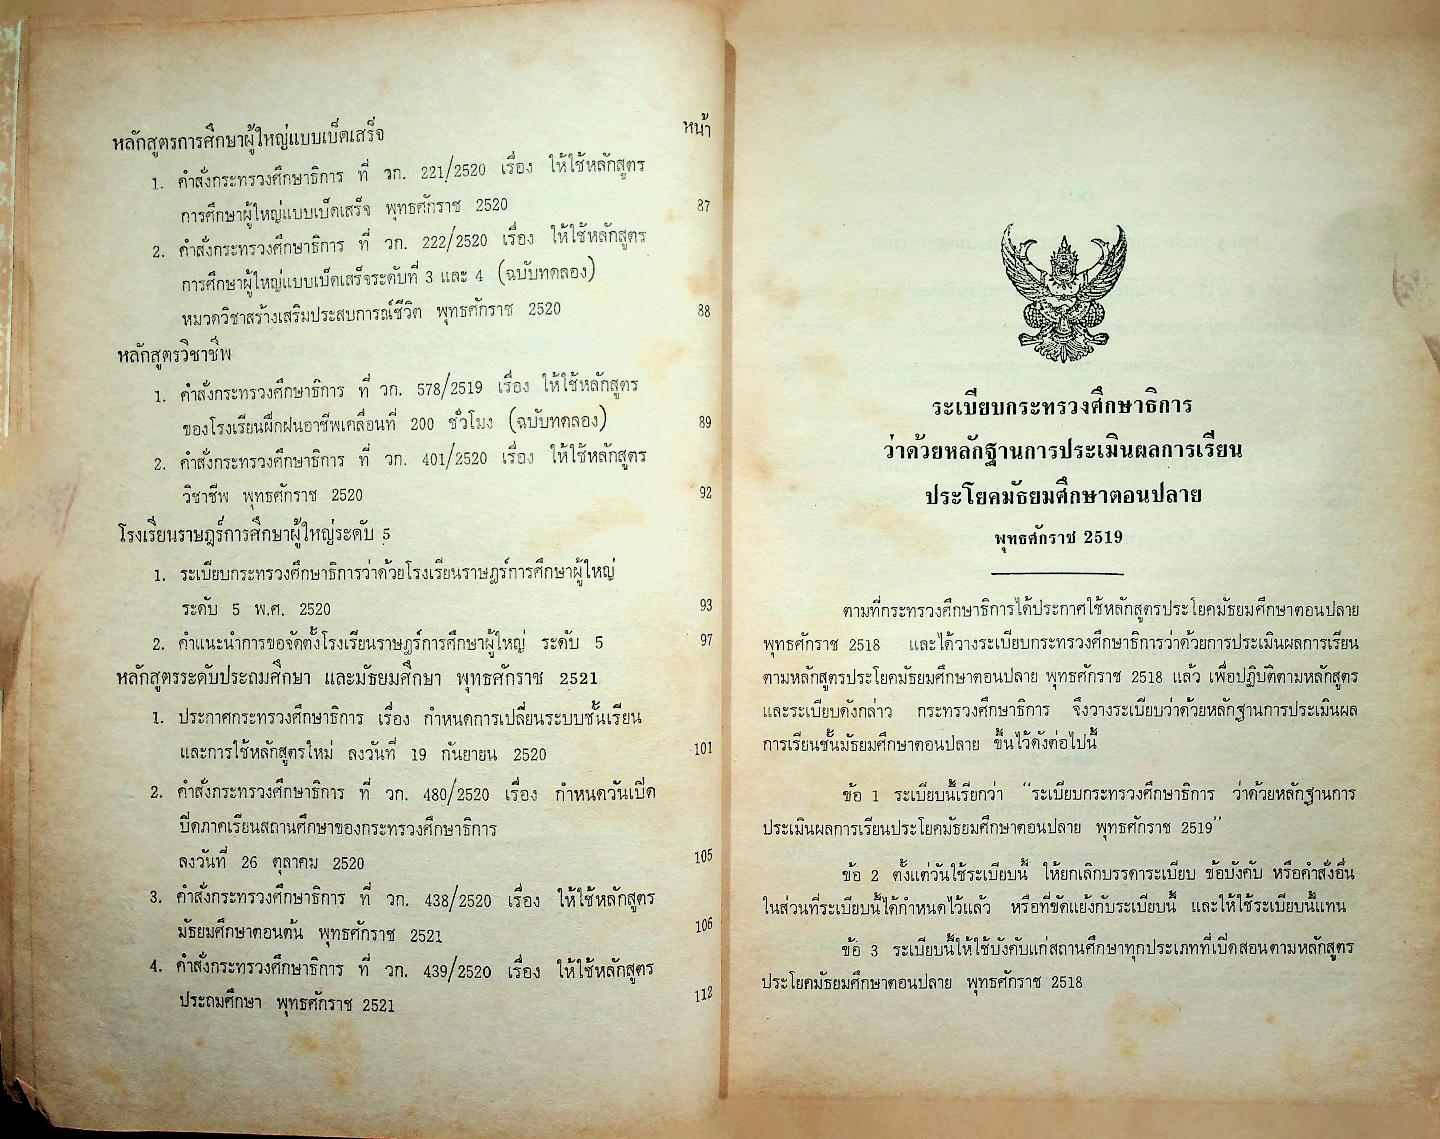 หน้า
หลักสูตรการศึกษาผู้ใหญ่แบบเบ็ดเสร็จ
1. คำสั่งกระทรวงศึกษาธิการ ที่ วก. 221/2520 เรื่อง ให้ใช้หลักสูตร
การศึกษาผู้ใหญ่แบบเบ็ดเสร็จ พุทธศักราช 2520 87
2. คำสั่งกระทรวงศึกษาธิการ ที่ วก. 222/2520 เรื่อง ให้ใช้หลักสูตร
การศึกษาผู้ใหญ่แบบเบ็ดเสร็จระดับที่ 3 และ 4 (ฉบับทดลอง)
หมวดวิชาสร้างเสริมประสบการณ์ชีวิต พุทธศักราช 2520 88
หลักสูตรวิชาชีพ
1. คำสั่งกระทรวงศึกษาธิการ ที่ วก. 578/2519 เรื่อง ให้ใช้หลักสูตร
ของโรงเรียนฝึกฝนอาชีพเคลื่อนที่ 200 ชั่วโมง (ฉบับทดลอง) 89
2. คำสั่งกระทรวงศึกษาธิการ ที่ วก. 401/2520 เรื่อง ให้ใช้หลักสูตร
วิชาชีพ พุทธศักราช 2520 92
โรงเรียนราษฎร์การศึกษาผู้ใหญ่ระดับ 5
1. ระเบียบกระทรวงศึกษาธิการว่าด้วยโรงเรียนราษฎร์การศึกษาผู้ใหญ่
ระดับ 5 พ.ศ. 2520 93
2. คำแนะนำการขอจัดตั้งโรงเรียนราษฎร์การศึกษาผู้ใหญ่ ระดับ 5 97
หลักสูตรระดับประถมศึกษา และมัธยมศึกษา พุทธศักราช 2521
1. ประกาศกระทรวงศึกษาธิการ เรื่อง กำหนดการเปลี่ยนระบบชั้นเรียน
และการใช้หลักสูตรใหม่ ลงวันที่ 19 กันยายน 2520 101
2. คำสั่งกระทรวงศึกษาธิการ ที่ วก. 480/2520 เรื่อง กำหนดวันเปิด
ปิดภาคเรียนสถานศึกษาของกระทรวงศึกษาธิการ
ลงวันที่ 26 ตุลาคม 2520 105
3. คำสั่งกระทรวงศึกษาธิการ ที่ วก. 438/2520 เรื่อง ให้ใช้หลักสูตร
มัธยมศึกษาตอนต้น พุทธศักราช 2521 106
4. คำสั่งกระทรวงศึกษาธิการ ที่ วก. 439/2520 เรื่อง ให้ใช้หลักสูตร
ประถมศึกษา พุทธศักราช 2521 112
ระเบียบกระทรวงศึกษาธิการ
ว่าด้วยหลักฐานการประเมินผลการเรียน
ประโยคมัธยมศึกษาตอนปลาย
พุทธศักราช 2519
ตามที่กระทรวงศึกษาธิการได้ประกาศใช้หลักสูตรประโยคมัธยมศึกษาตอนปลาย
พุทธศักราช 2518 และได้วางระเบียบกระทรวงศึกษาธิการว่าด้วยการประเมินผลการเรียน
ตามหลักสูตรประโยคมัธยมศึกษาตอนปลาย พุทธศักราช 2518 แล้ว เพื่อปฏิบัติตามหลักสูตร
และระเบียบดังกล่าว กระทรวงศึกษาธิการ จึงวางระเบียบว่าด้วยหลักฐานการประเมินผล
การเรียนชั้นมัธยมศึกษาตอนปลาย ขึ้นไว้ดังต่อไปนี้
ข้อ 1 ระเบียบนี้เรียกว่า “ระเบียบกระทรวงศึกษาธิการ ว่าด้วยหลักฐานการ
ประเมินผลการเรียนประโยคมัธยมศึกษาตอนปลาย พุทธศักราช 2519”
ข้อ 2 ตั้งแต่วันใช้ระเบียบนี้ ให้ยกเลิกบรรดาระเบียบ ข้อบังคับ หรือคำสั่งอื่น
ในส่วนที่ระเบียบนี้ได้กำหนดไว้แล้ว หรือที่ขัดแย้งกับระเบียบนี้ และให้ใช้ระเบียบนี้แทน
ข้อ 3 ระเบียบนี้ให้ใช้บังคับแก่สถานศึกษาทุกประเภทที่เปิดสอนตามหลักสูตร
ประโยคมัธยมศึกษาตอนปลาย พุทธศักราช 2518